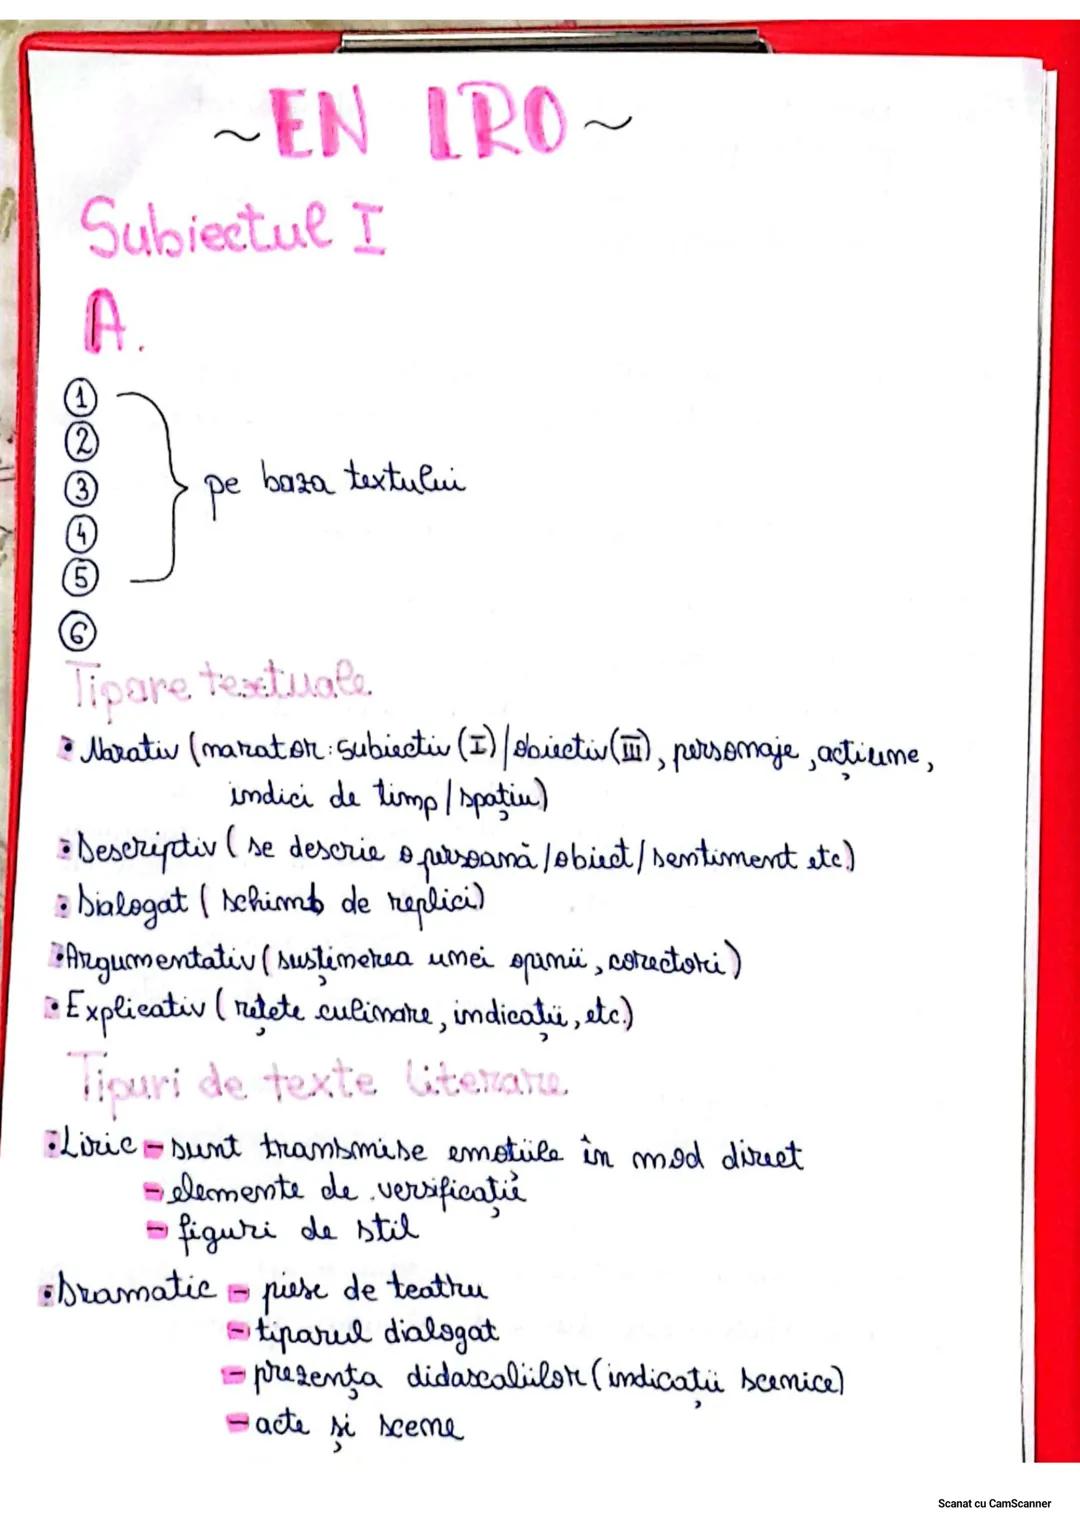 ~EN LRO~
Subiectul I
A.
1
2
3
4
5
pe baza textului
6
Tipare textuale
• Narativ (narator: subiectiv (I)/obiectiv (III), personaje, acțiune,
indici de timp/spațiu)
• Descriptiv (se descrie o persoană/obiect/sentiment etc.)
• Dialogat (schimb de replici)
• Argumentativ (susținerea unei opinii, corectori)
• Explicativ (rețete culinare, indicații, etc.)
Tipuri de texte literare
• Liric - sunt transmise emoțiile în mod direct
- elemente de versificație
- figuri de stil
• Dramatic - piese de teatru
- tiparul dialogat
- prezența didascaliilor (indicații scenice)
- acte și scene
Scanat cu CamScanner